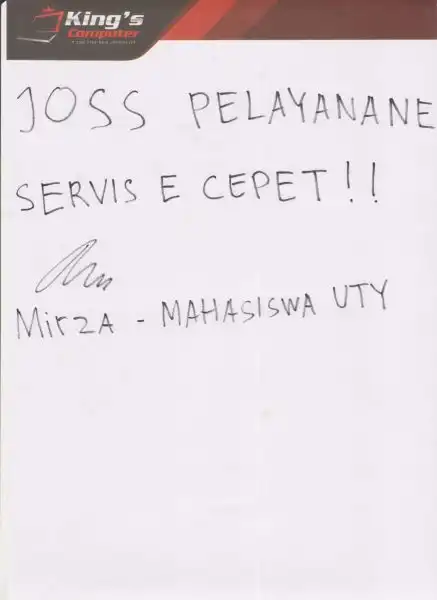 King's
Computer
JOSS PELAYANANE
SERVIS E CEPET!!
Mirza - MAHASISWA UTY